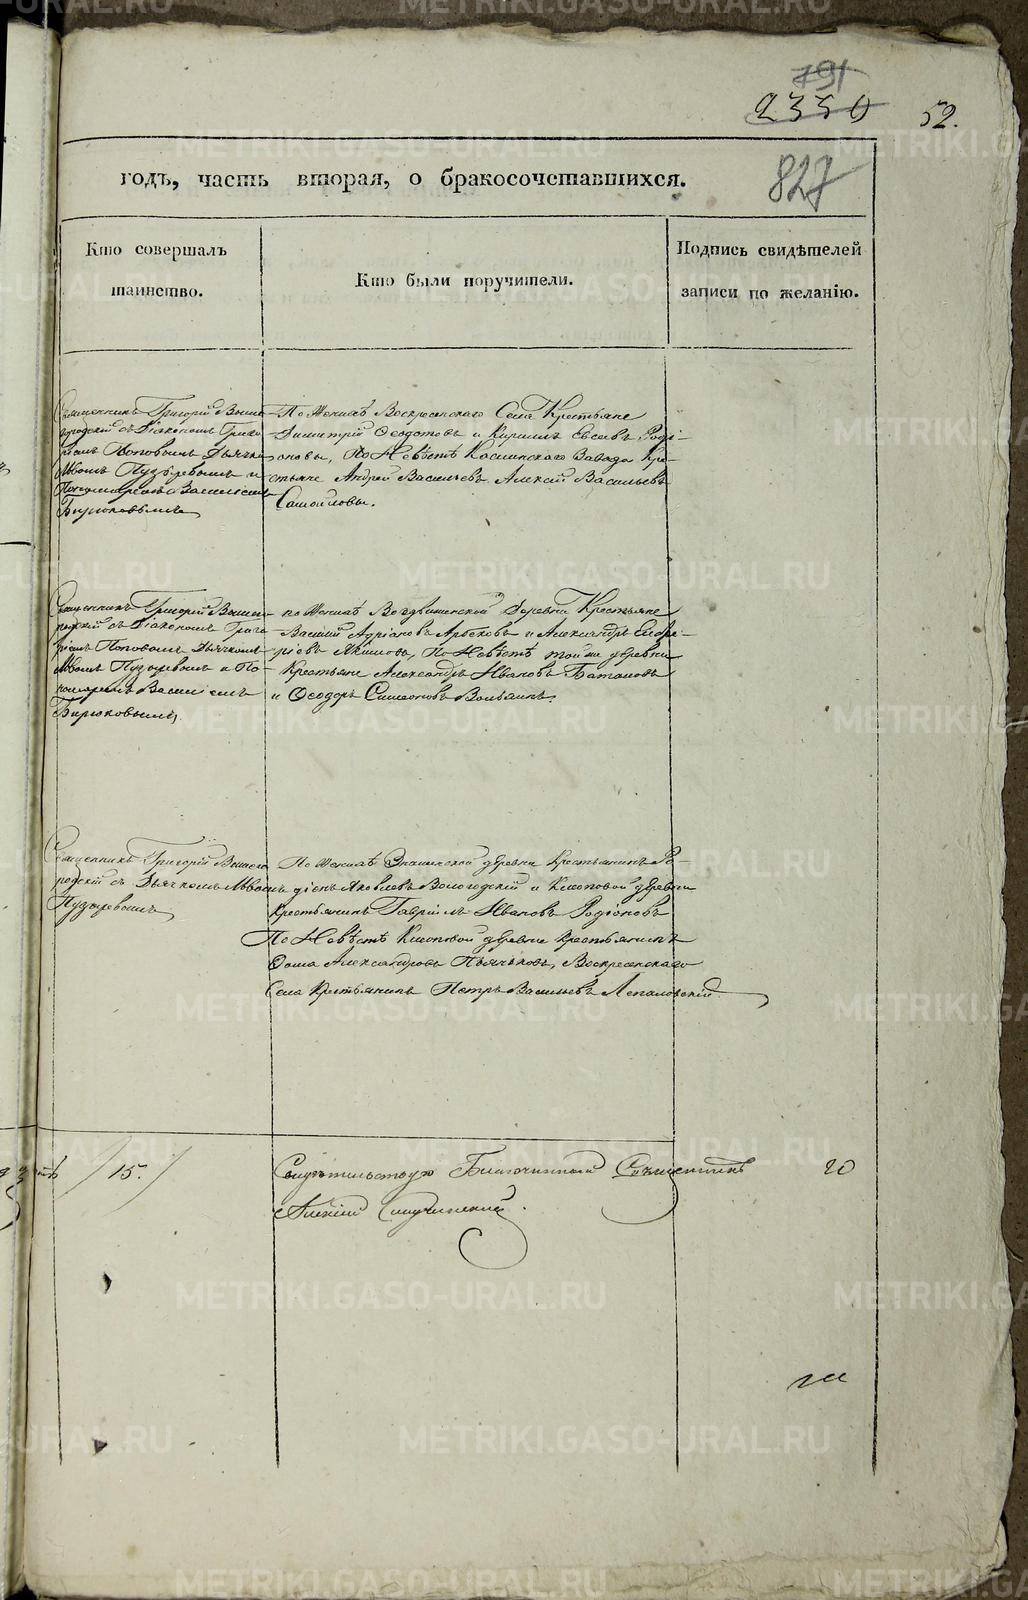 791
2350
52.
827
годъ, часть вторая, о бракосочетавшихся.
Кто совершалъ
таинство.
Кто были поручители.
Подпись свидѣтелей
записи по желанію.
Священникъ Григорій Вышего-
родскій съ Діакономъ Григо-
ріемъ Поповымъ Дьячкомъ
Иваномъ Пузыревымъ и
Пономаремъ Василіемъ
Бирюковымъ
По Женихѣ Воскресенскаго Села Крестьяне
Димитрій Ѳеодотовъ и Кириллъ Евсевъ Роді-
оновы, По Невѣстѣ Каслинскаго Завода Кре-
стьяне Андрей Васильевъ Алексій Васильевъ
Самойловы.
Священникъ Григорій Вышего-
родскій съ Діакономъ Григо-
ріемъ Поповымъ Дьячкомъ
Иваномъ Пузыревымъ и По-
номаремъ Василіемъ
Бирюковымъ
по Женихѣ Воздвиженской Деревни Крестьяне
Василій Адріановъ и Александръ
По Невѣстѣ тойже деревни
Крестьяне Александръ Ивановъ Батановъ
и Ѳеодоръ Симеоновъ
Священникъ Григорій Вышего-
родскій съ Дьячкомъ Иваномъ
Пузыревымъ
По Женихѣ деревни Крестьянинъ Ро-
діонъ Яковлевъ Вологодскій и Клоповой деревни
Крестьянинъ Гавріилъ Ивановъ Родіоновъ
По Невѣстѣ Клоповой деревни Крестьянинъ
Ѳома Александровъ Пьячьковъ, Воскресенскаго
Села Крестьянинъ Петръ Васильевъ Лепаловскій
/15./
Свидѣтельствую Благочинный Священникъ
Алексій
20